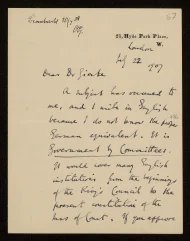 21, Hyde Park Place,
W.
London
July 22 1907
Dear Dr Gierke
A subject has occurred to
me, and I write in English
because I do not know the proper
German equivalent. It is
Government by Committees.
It would cover many English
institutions from the beginnings
of the King's Council to the
present constitution of the
Inns of Court. If you approve